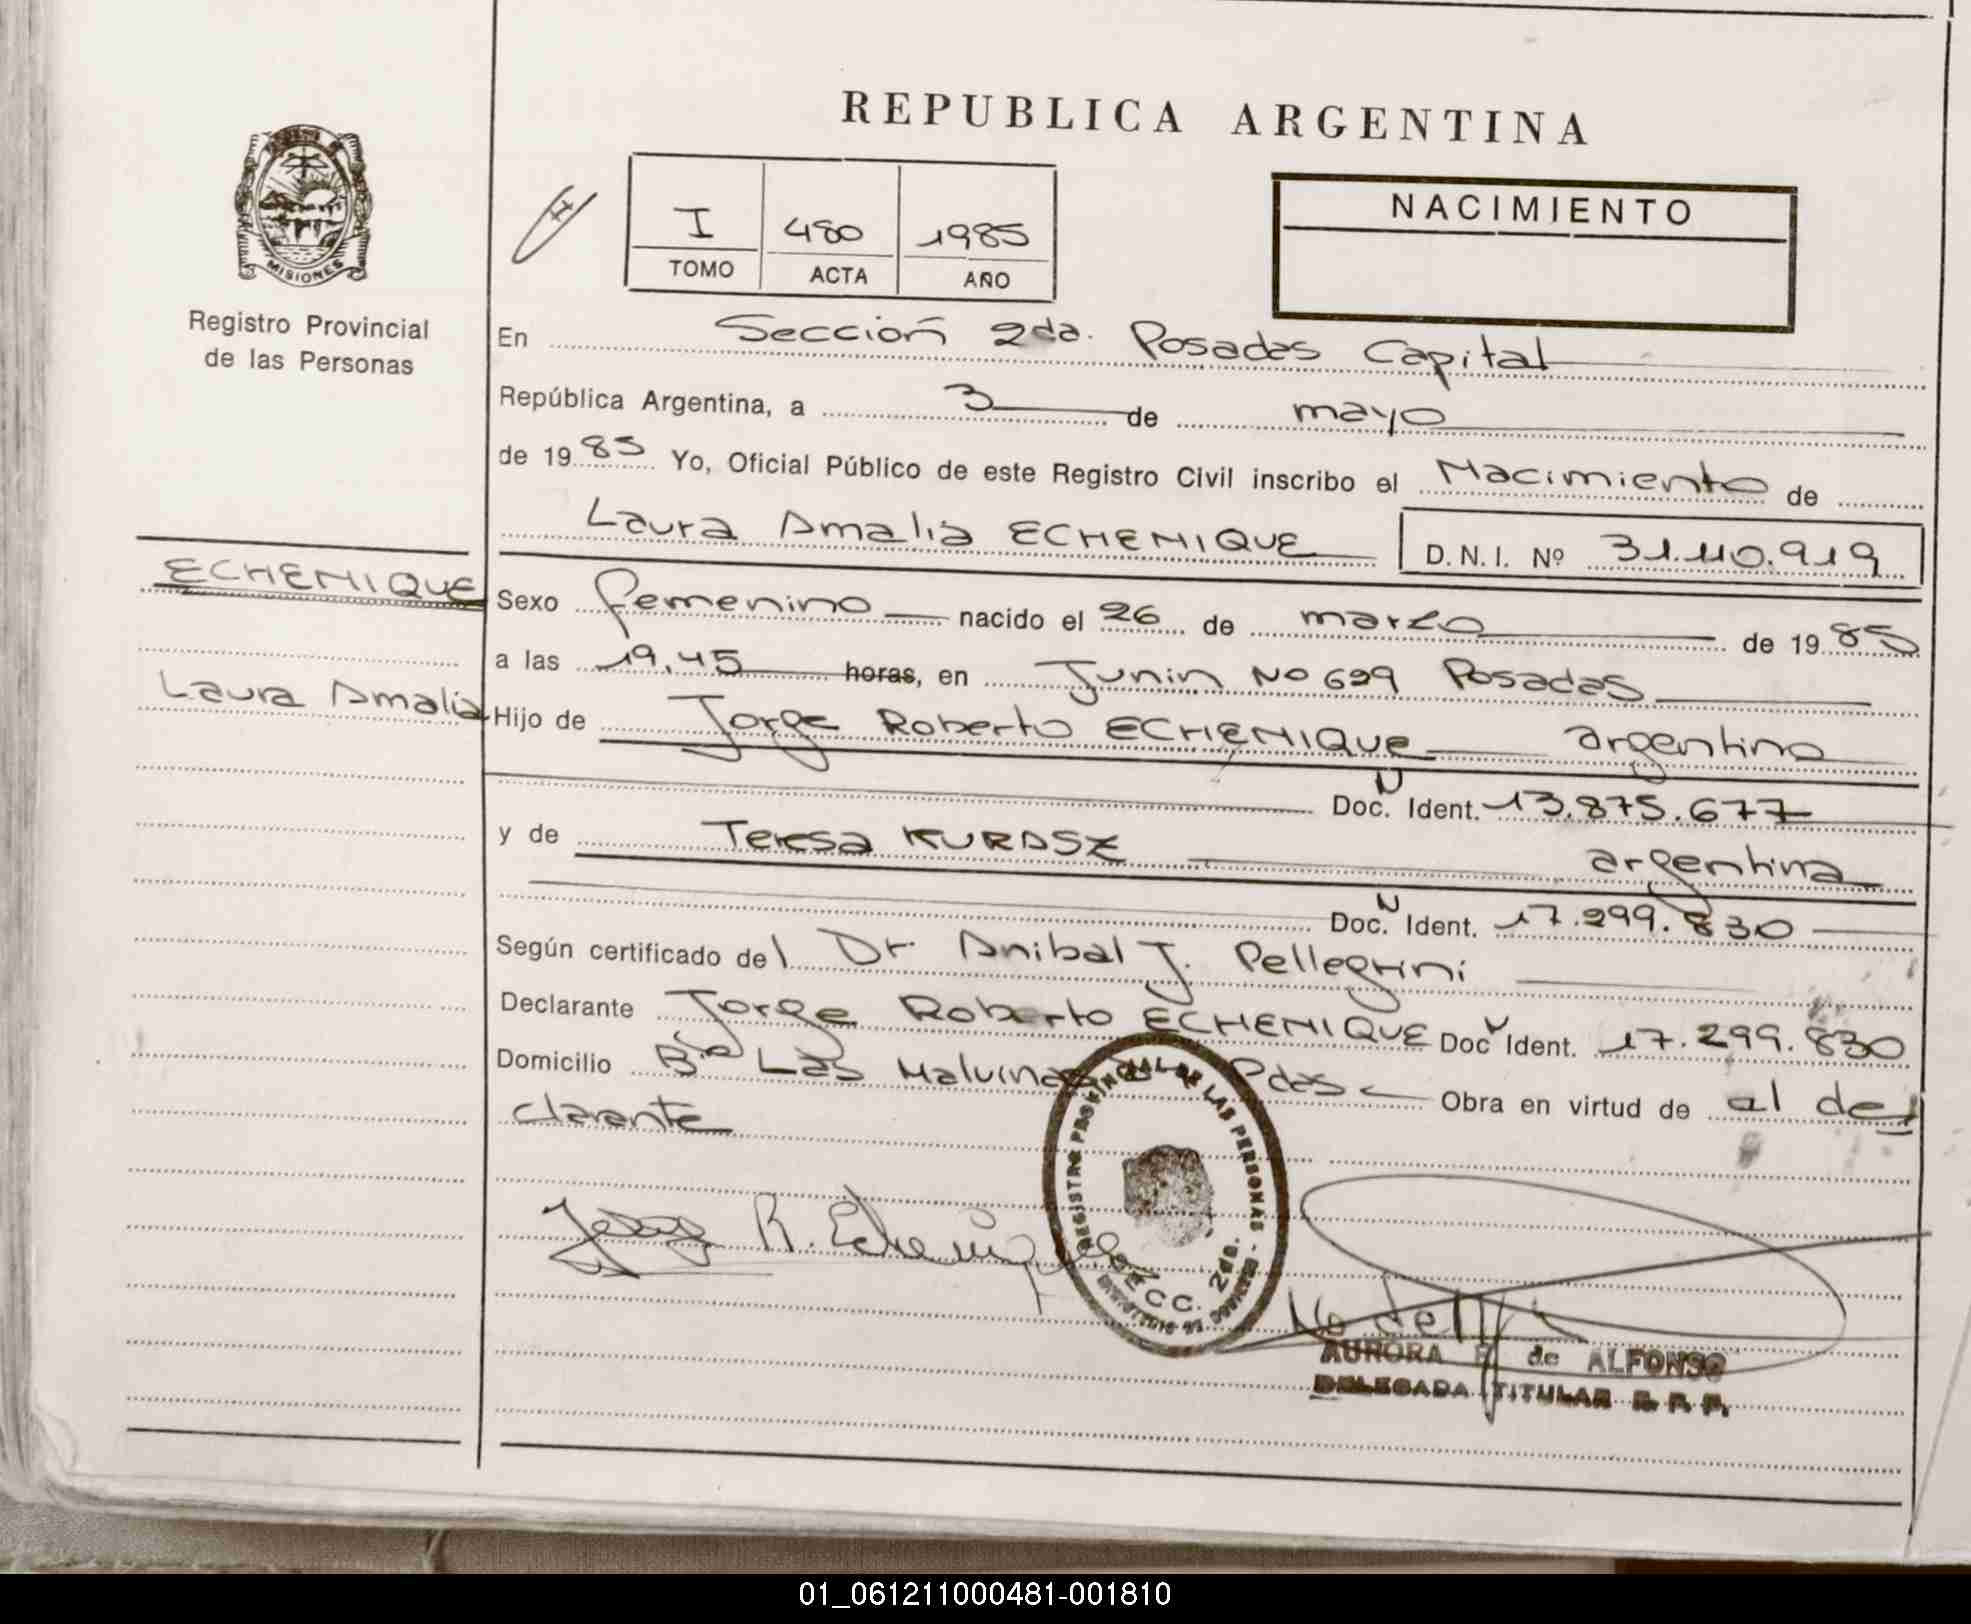 REPUBLICA ARGENTINA
MISIONES
Registro Provincial
de las Personas
I 480 1985
TOMO ACTA AÑO
NACIMIENTO
En Sección 2da. Posadas Capital
República Argentina, a 3 de mayo
de 1985 Yo, Oficial Público de este Registro Civil inscribo el Nacimiento de
Laura Amalia ECHENIQUE D.N.I. Nº 31.110.919
ECHENIQUE
Laura Amalia
Sexo femenino nacido el 26 de marzo de 1985
a las 19.45 horas, en Junin No 699 Posadas
Hijo de Jorge Roberto ECHENIQUE argentino
Doc. N Ident. 13.875.677
y de Teresa KURASZ argentina
Doc. N Ident. 17.299.830
Según certificado del Dr Anibal J. Pellegrini
Declarante Jorge Roberto ECHENIQUE Doc Ident. 17.299.830
Domicilio Bº Las Malvinas Pdas Obra en virtud de al de
clarante
Jorge R. Echenique
REGISTRO PROVINCIAL DE LAS PERSONAS
SECC. 2da.
AURORA de ALFONSO
DELEGADA TITULAR R. P. P.
01_061211000481-001810